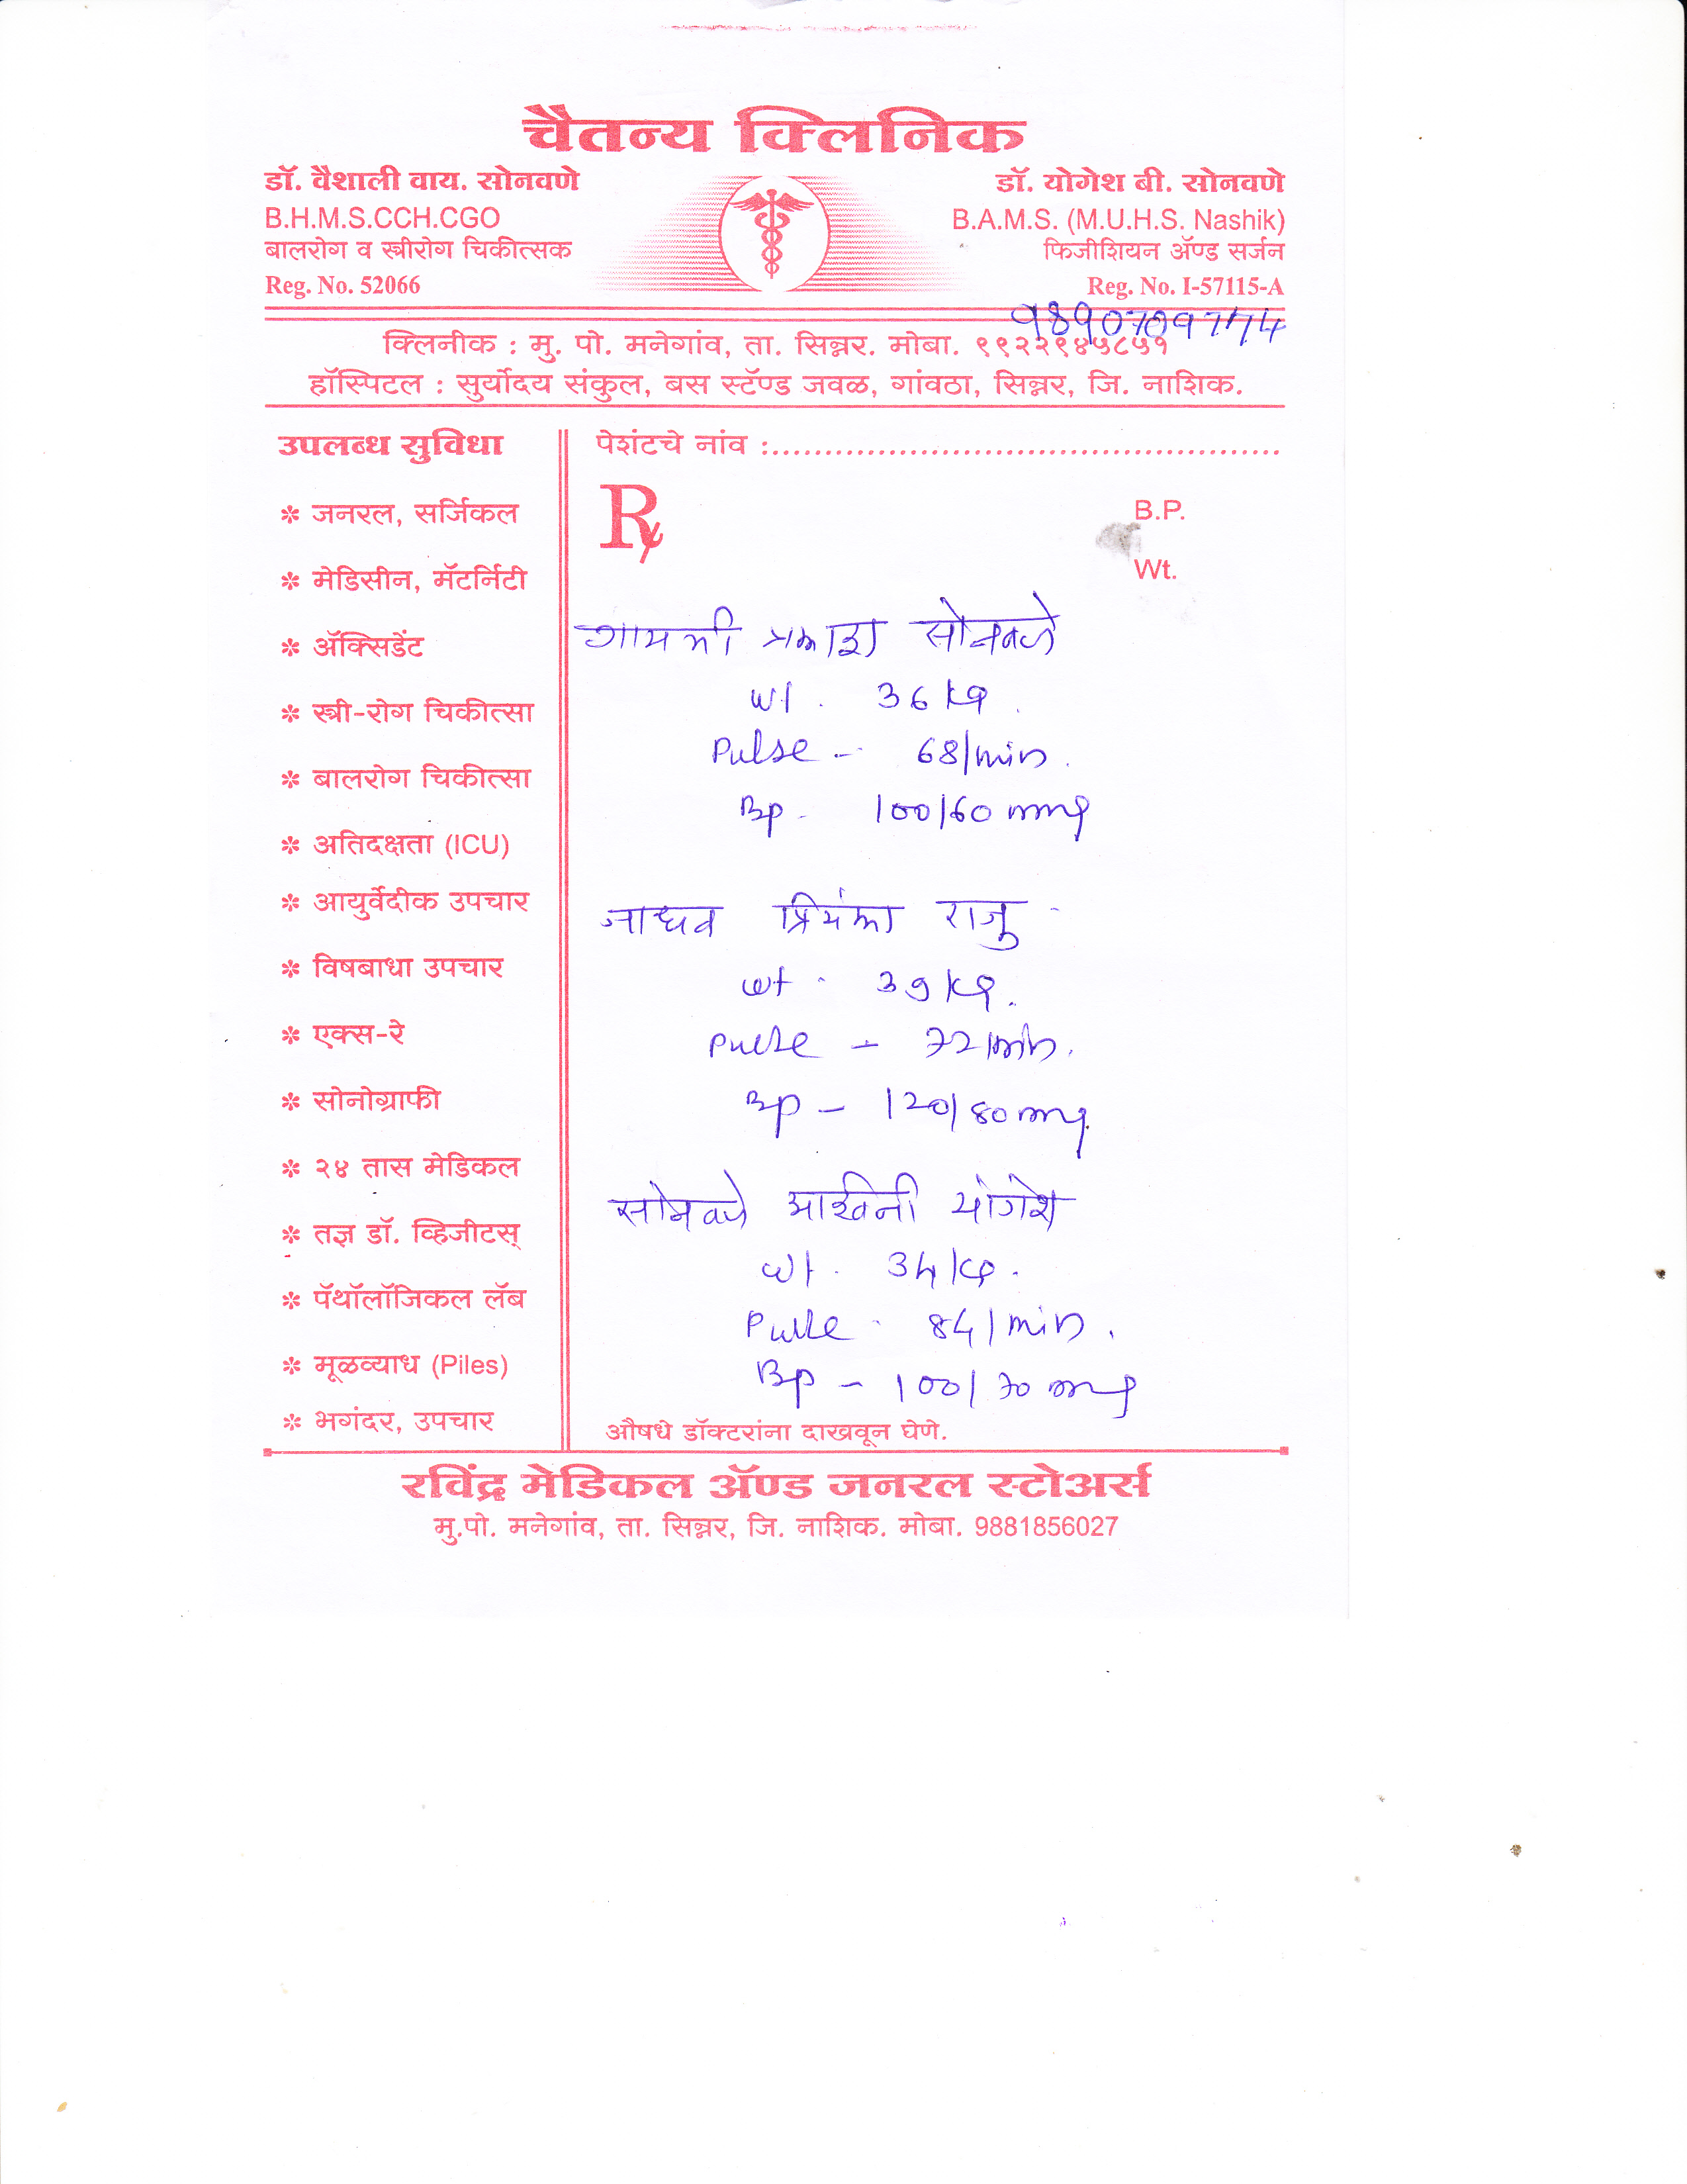 चैतन्य क्लिनिक
डॉ. वैशाली वाय. सोनवणे
B.H.M.S.CCH.CGO
बालरोग व स्त्रीरोग चिकीत्सक
Reg. No. 52066
डॉ. योगेश बी. सोनवणे
B.A.M.S. (M.U.H.S. Nashik)
फिजीशियन ॲण्ड सर्जन
Reg. No. I-57115-A
क्लिनीक : मु. पो. मनेगांव, ता. सिन्नर. मोबा. ९९२२९४५८५१
हॉस्पिटल : सुर्योदय संकुल, बस स्टॅण्ड जवळ, गांवठा, सिन्नर, जि. नाशिक.
उपलब्ध सुविधा
* जनरल, सर्जिकल
* मेडिसीन, मॅटर्निटी
* ॲक्सिडेंट
* स्त्री-रोग चिकीत्सा
* बालरोग चिकीत्सा
* अतिदक्षता (ICU)
* आयुर्वेदीक उपचार
* विषबाधा उपचार
* एक्स-रे
* सोनोग्राफी
* २४ तास मेडिकल
* तज्ञ डॉ. व्हिजीटस्
* पॅथॉलॉजिकल लॅब
* मूळव्याध (Piles)
* भगंदर, उपचार
पेशंटचे नांव :
Rx
B.P.
Wt.
प्रकाश सोनवणे
Wt. 36 kg.
Pulse - 68/min.
Bp - 100/60 mmg
जाधव प्रियंका राजु -
wt - 39 kg.
Pulse - 72/min.
Bp - 120/80 mmg.
सोनवणे योगेश
Wt. 34 kg.
Pulse - 84/min.
Bp - 100/70 mmg
औषधे डॉक्टरांना दाखवून घेणे.
रविंद्र मेडिकल ॲण्ड जनरल स्टोअर्स
मु.पो. मनेगांव, ता. सिन्नर, जि. नाशिक. मोबा. 9881856027